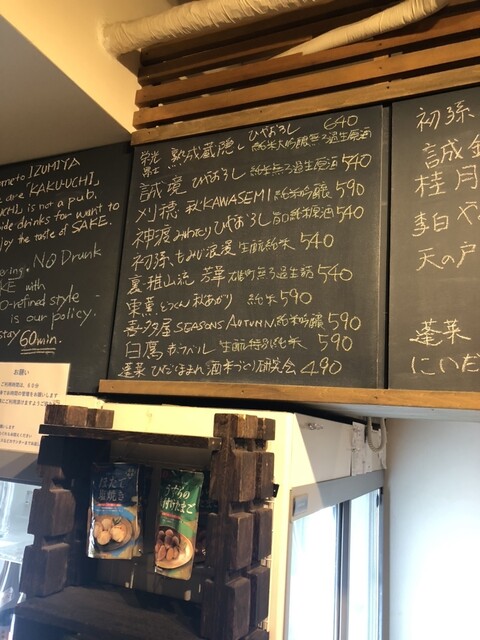 meto IZUMIYA
are "KAKU-UCHI"
UCHI" is not a pub.
ide drinks for want to
joy the taste of SAKE.
NO Drunk
KE with
O-refined style
is our policy.
stay 60min.
栄光冨士 熟成蔵隠し ひやおろし 純米大吟醸無ろ過生原酒 640
誠鏡 ひやおろし 純米無ろ過生原酒 540
刈穂 秋KAWASEMI 純米吟醸 590
神渡 みわたりひやおろし 旨口純米原酒 540
初孫 もみじ浪漫 生酛純米 540
夏椎山流 芳華 雄町無ろ過生詰 540
東薫 とっくん秋あがり 純米 590
喜多屋 SEASONS AUTUMN 純米吟醸 590
白鷹 赤ラベル 生酛特別純米 590
蓬莱 ひだほまれ 酒米づくり研究会 490
初孫
誠
桂月
李白 や
天の戸
蓬莱
にいだ
お願い
ほたて
塩焼き
うずらの
味付たまご